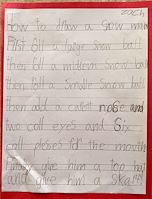 zach
How to draw a snow man
First roll a large snow ball
then roll a midieum snow ball
then roll a Smalle Snow ball
then add a carret nose and
two coll eyes and Six
coll pieses for the mouth
Finaly give him a top hat
and give him a skarf